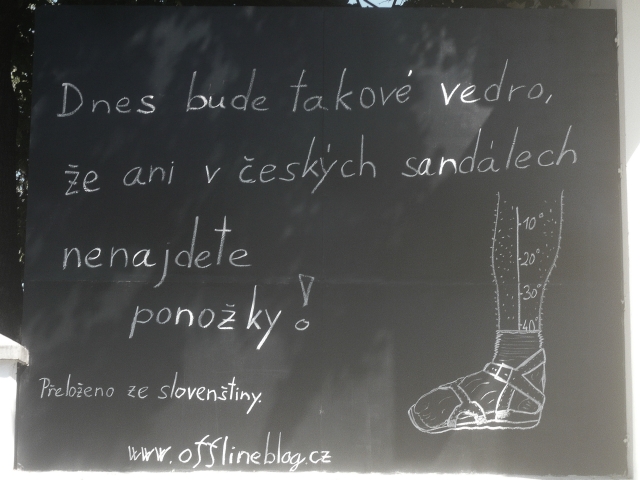 Dnes bude takové vedro,
že ani v českých sandálech
nenajdete
ponožky!
10°
20°
30°
40°
Přeloženo ze slovenštiny.
www.offlineblog.cz